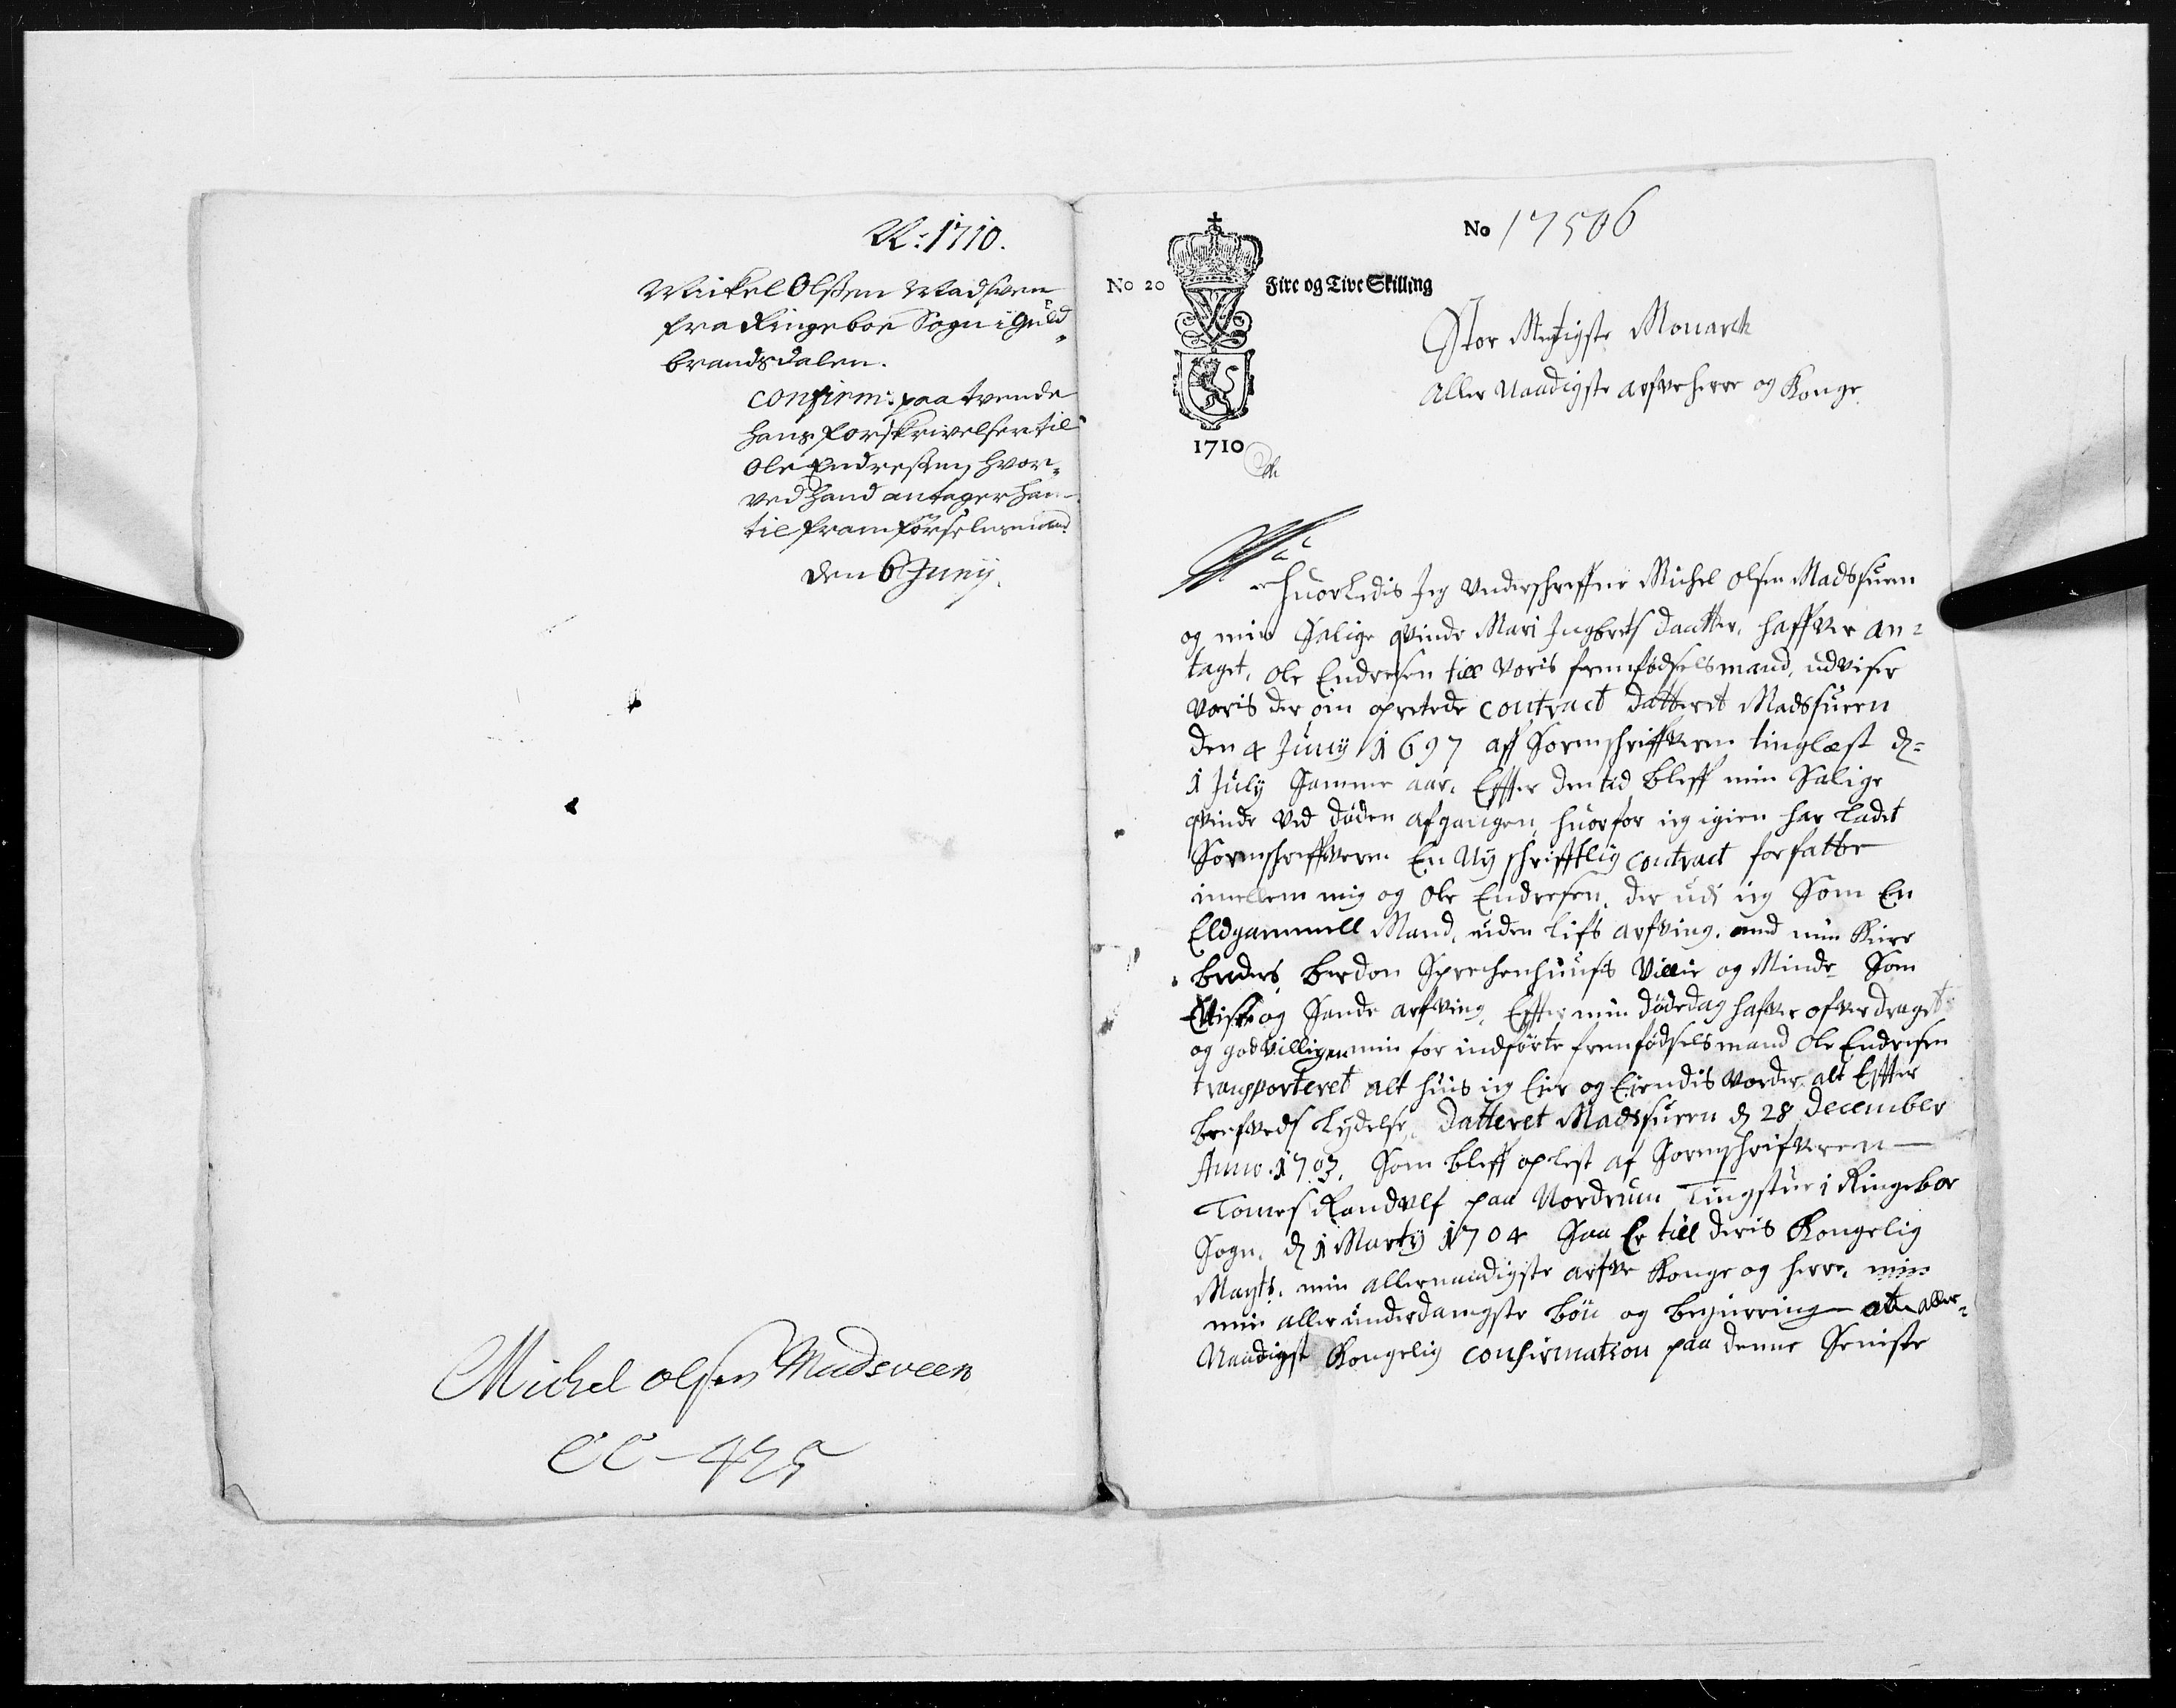 R: 1710.
Mickel Olssen Madsveen
fra Ringeboe Sogn i Guld-
brandsdalen.
confirm: paa tvende
hans forskrivelser til
Ole Endressen, hvor-
ved hand antager ham
til framførselsmand
den 6 Junij.
Michel olsen Madsveen
CC-425
No 17506
No 20 Fire og Tive Skilling
1710
Stor Megtigste Monarch
Aller Naadigste arfve herre og Konge
huorledis Jeg underschreffne Michel olsen Madssuen
og min Salige qvinde Mari Ingbrets daatter, haffver an=
taget, ole Endresen till voris fremfødselsmand, udviser
voris der om opretede contract datterit Madssueen
den 4 Junij 1697 aff Sorenschriffveren tinglæst d=
1 Julij Samme aar. Effter den tid bleff min Salige
qvinde ved døden afgangen, huorfor ieg igien har ladet
Sorenschriffveren En Ny schrifftlig contract forfatte
imellem mig og Ole Endresen, der udi ieg Som En
Eldgammell Mand, uden lifs arfving, med min Kiere
broders Villie og Minde Som
og Sande arfving, Effter min dødedag hafver ofverdraget
og godvilligen min for indførte fremfødselsmand Ole Endresen
transporteret alt huis ieg Eier og Eiendis vorder, alt Effter
brefveds lydelse, datteret Madssueen d 28 December
Anno 1703. Som bleff oplest af Sorenschrifveren
Tomes Randulf paa Nordrum Tingstue i Ringeboe
Sogn, d 1 Martij 1704 Saa Er till deris Kongelig
Mayts. min allernaadigste arfve Konge og herre, min
min aller underdanigste bøn og begiering at aller=
Naadigst Kongelig confirmation paa denne Seniste